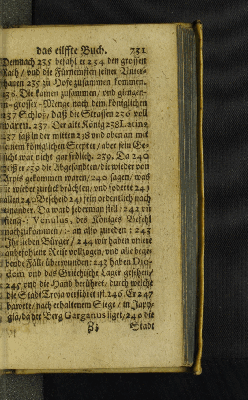 das eilffte Buch. 751
Demnach 235 befahl er 254 den grossen
Rath / und die Fürnemsten seiner Unter-
thanen 235 zu Hofe zusammen kommen.
236. Die kamen zusammen, und giengen
in grosser Menge nach dem königlichen
237 Schloß, daß die Strassen 236 voll
waren. 237. Der alte König 238 Latinus,
237 saß in der mitten 238 und oben an mit
seinem königlichen Scepter, aber sein Ge-
sicht war nicht gar frölich. 239. Da 240
hiesse 239 die Abgesandten / die wieder von
Arpis gekommen waren / 240 sagen / was
sie wieder zurück brächten, und redette 241
allen 240 Bescheid 241 fein ordentlich nach
einander. Da ward jederman still / 242 und
fieng Venulus, des Königes Befehl
nachzukommen / : an also zu reden : 243
Ihr lieben Bürger / 244 wir haben unsere
anbefohlene Reise vollzogen, und alle bege-
bende Fälle überwunden: 243 haben Dio-
den und das Griechische Läger gesehen /
245 und die Hand berühret / durch welche
die Stadt Troja verstöret ist. 246 Er 247
bawete / nach erhaltenem Siege / in Japy-
gia / da der Berg Garganus liget / 246 die
Stadt